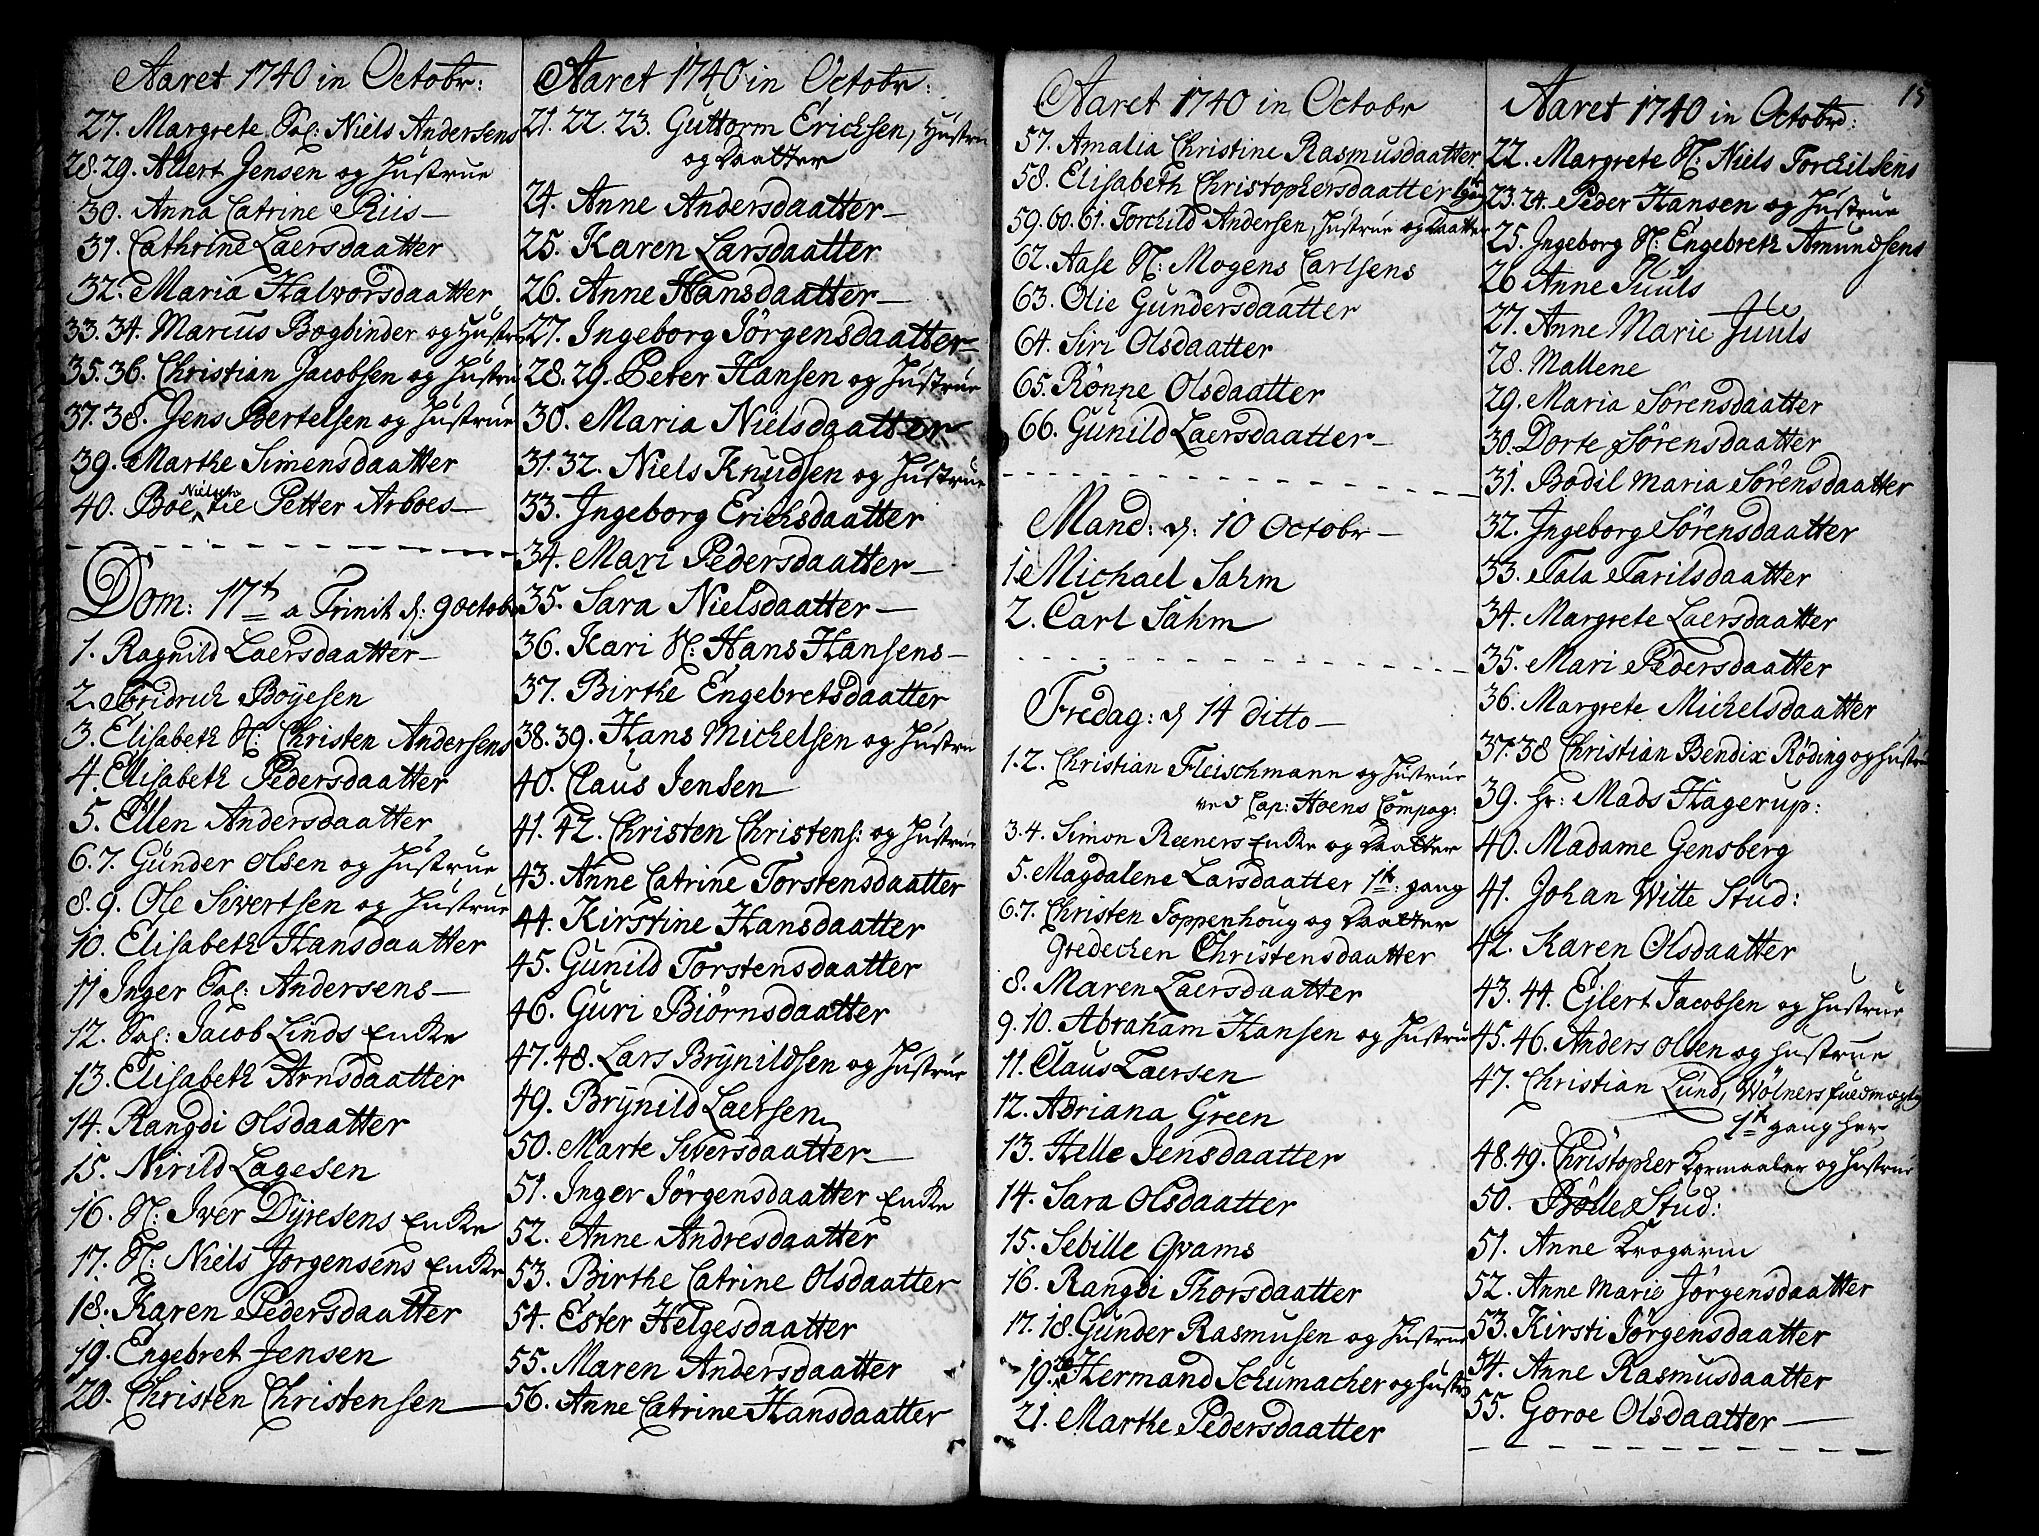 Aaret 1740 in Octobr:
27. Margrete Sal: Niels Andersens
28. 29. Allert Jensen og Hustrue
30. Anna Catrine Riis
31. Cathrine Laersdaatter
32. Maria Halvorsdaatter
33. 34. Marcus Bogbinder og Hustru
35. 36. Christian Jacobsen og Hustru
37. 38. Jens Bertelsen og Hustrue
39. Marthe Simensdaatter
Nielsen
40. Boe tie Petter Arboes
Dom: 17de a Trinit d: 9 octobr
1. Ragnild Laersdaatter
2. Fridrich Boyesen
3. Elisabeth N: Christen Andersens
4. Elisabeth Pedersdaatter
5. Ellen Andersdaatter
6. 7. Gunder Olsen og Hustrue
8. 9. Ole Sivertsen og Hustrue
10. Elisabeth Hansdaatter
11 Inger Sal: Andersens
12. Sal: Jacob Linds Encke
13. Elisabeth Arnsdaatter
14. Rangdi Olsdaatter
15. Nirild Lagesen
16. N: Iver Dyresens Encke
17. N: Niels Jørgensens Encke
18. Karen Pedersdaatter
19. Engebret Jensen
20. Christen Christensen
Aaret 1740 in Octobr:
21. 22. 23. Guttorm Ericksen, Hustru
og Daatter
24. Anne Andersdaatter
25. Karen Larsdaatter
26. Anne Hansdaatter
27. Ingeborg Jörgensdaatter
28. 29. Peter Hansen og Hustrue
30. Maria Nielsdaatter
31. 32. Niels Knudsen og Hustrue
33. Ingeborg Ericksdaatter
34. Mari Pedersdaatter
35. Sara Nielsdaatter
36. Kari N: Hans Hansens
37. Birthe Engebretsdaatter
38. 39. Hans Michelsen og Hustru
40. Claus Jensen
41. 42. Christen Christens: og Hustrue
43. Anne Catrine Torstensdaatter
44. Kirstine Hansdaatter
45. Gunild Torstensdaatter
46. Guri Biörnsdaatter
47. 48. Lars Brynildsen og Hustrue
49. Brynild Laersen
50. Marte Siversdaatter
51. Inger Jörgensdaatter Encke
52. Anne Andresdaatter
53. Birthe Catrine Olsdaatter
54. Ester Helgesdaatter
55. Maren Andersdaatter
56. Anne Catrine Hansdaatter
Aaret 1740 in Octobr
57. Amalia Christine Rasmusdaatter
58. Elisabeth Christophersdaatter
59. 60. 61. Torchild Andersen, Hustrue og Daatter
62. Aase N: Mogens Carlsens
63. Olie Gundersdaatter
64. Siri Olsdaatter
65. Rönne Olsdaatter
66. Gunild Laersdaatter
Mand: d: 10 Octobr
1. Michael Sahm
2. Carl Sahm
Fredag: d 14 ditto
1. 2. Christian Fleischmann og Hustrue
ved Cap: Hoens Compag:
3. 4. Simon Reeners Encke og Daatter
5. Magdalene Larsdaatter 1te: gang
6. 7. Christen Toppenhoug og Daatter
Gredechen Christensdaatter
8. Maren Laersdaatter
9. 10. Abraham Hansen og Hustru
11. Claus Laersen
12. Adriana Green
13. Helle Jensdaatter
14. Sara Olsdaatter
15. Sebille Qvams
16. Rangdi Thorsdaatter
17. 18. Gunder Rasmusen og Hustrue
19. 20 Hermand Schumacher og Hustru
21. Marthe Pedersdaatter
15
Aaret 1740 in Octobr:
22. Margrete N: Niels Torchilsens
23. 24. Peder Hansen og Hustrue
25. Ingeborg N: Engebreth Amundsens
26 Anne Juuls
27. Anne Marie Juuls
28. Mallene
29. Maria Sörensdaatter
30. Dorte Sörensdaatter
31. Bodil Maria Sörensdaatter
32. Ingeborg Sörensdaatter
33. Tala Tarilsdaatter
34. Margrete Laersdaatter
35. Mari Pedersdaatter
36. Margrete Michelsdaatter
37. 38 Christian Bendix Röding og Hustru
39. Hr: Mads Hagerup:
40. Madame Gensberg
41. Johan Witte Stud:
42. Karen Olsdaatter
43. 44. Ejlert Jacobsen og Hustrue
45. 46. Anders Olsen og Hustrue
47. Christian Lund, Wölners fuedmegtig
1te gang her
48. 49. Christopher Kormaaler og Hustrue
50. Bölle Stud:
51. Anne Krogarm
52. Anne Marie Jørgensdaatter
53. Kirsti Jörgensdaatter
54. Anne Rasmusdaatter
55. Goroe Olsdaatter